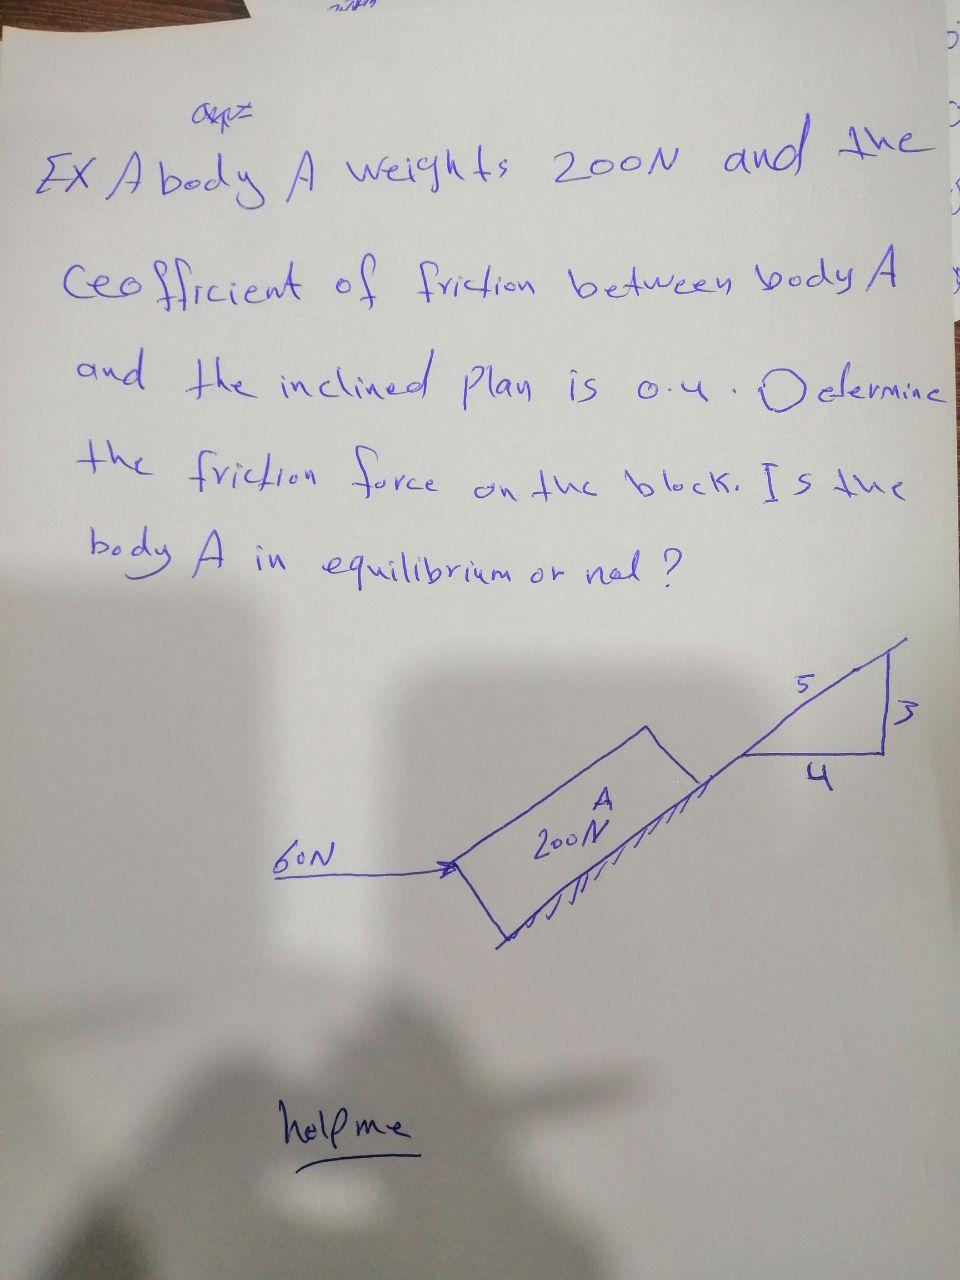 EX A body A weights 200N and the
Ceofficient of friction between body A
and the inclined plan is 0.4. Determine
the friction force on the block. Is the
body A in equilibrium or not?
5
3
4
A
200N
60N
help me